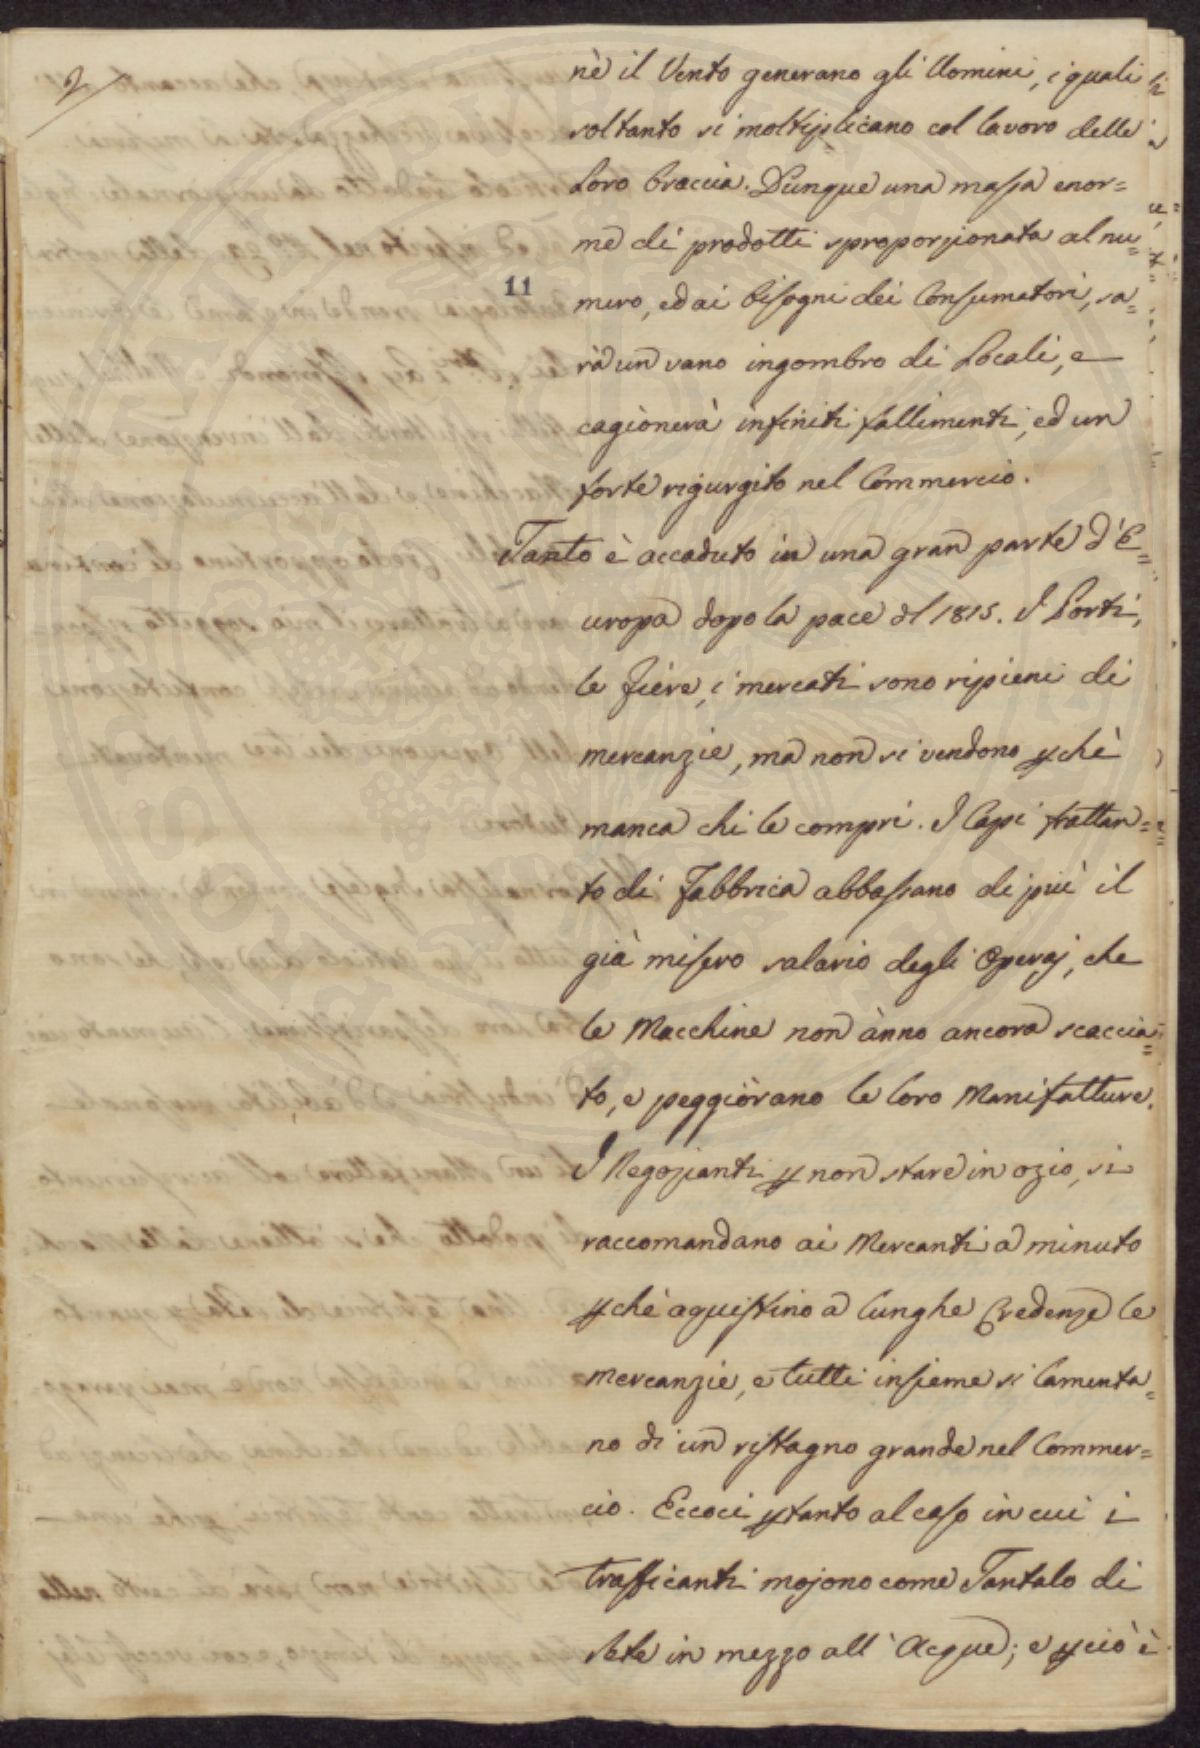 2
nè il Vento generano gli Uomini, i quali
soltanto si moltiplicano col lavoro delle
Loro braccia. Dunque una massa enor=
me di prodotti sproporzionata al nu=
11
mero, ed ai bisogni dei Consumatori, sa=
rà un vano ingombro di Locali, e
cagionerà infiniti fallimenti, ed un
forte rigurgito nel Commercio.
Tanto è accaduto in una gran parte d'E=
uropa dopo la pace dl 1815. I Porti,
le fiere, i mercati sono ripieni di
mercanzie, ma non si vendono pchè
manca chi le compri. I Capi frattan=
to di Fabbrica abbassano di più il
già misero salario degli Operaj, che
le Macchine non ànno ancora scaccia=
to, e peggiorano le loro Manifatture.
I Negozianti p non stare in ozio, si
raccomandano ai Mercanti a minuto
pchè aquistino a lunghe Credenze le
mercanzie, e tutti insieme si lamenta=
no di un ristagno grande nel Commer=
cio. Eccoci ptanto al caso in cui i
trafficanti mojono come Tantalo di
sete in mezzo all'Acque; e pciò è